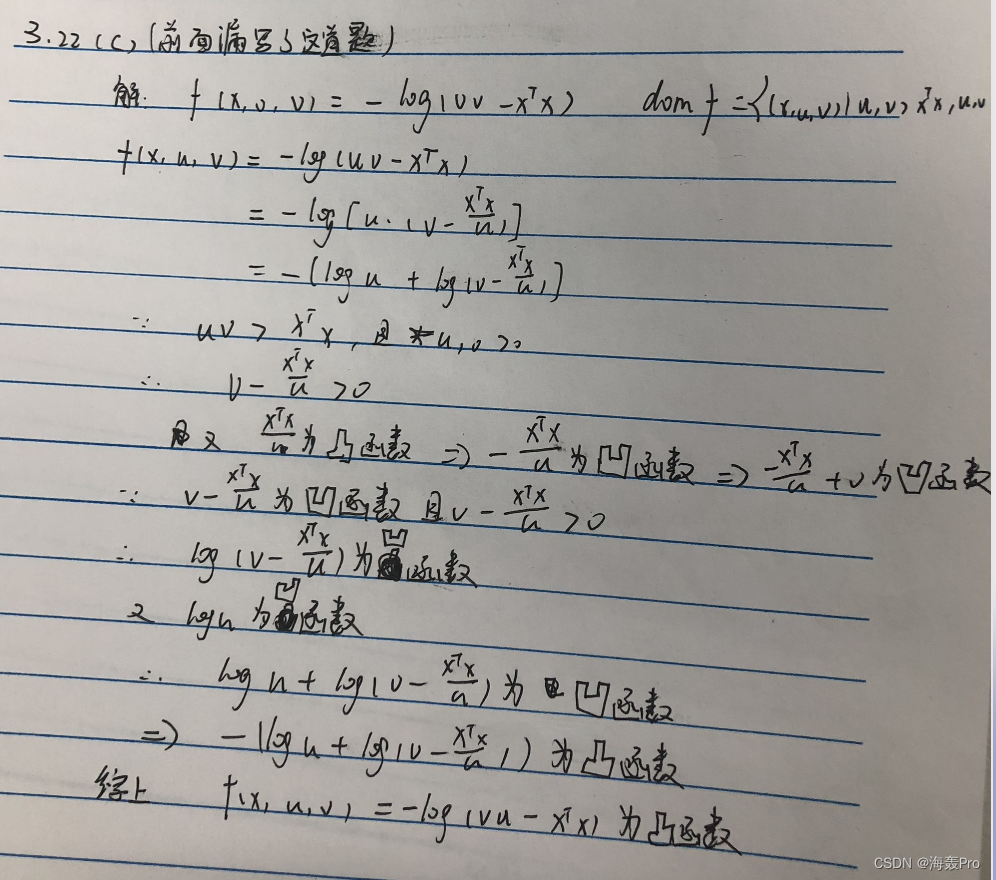 3.22 (C) (前面漏写了这道题)
解. f(x, u, v) = - log(uv - xᵀx) dom f = {(x,u,v) | uv > xᵀx, u,v
f(x, u, v) = -log(uv - xᵀx)
= -log[u·(v - xᵀx/u)]
= -[log u + log(v - xᵀx/u)]
∵ uv > xᵀx, 且 u,v >0
∴ v - xᵀx/u >0
又 xᵀx/u 为凸函数 => - xᵀx/u 为凹函数 => -xᵀx/u + v 为凹函数
∵ v - xᵀx/u 为凹函数 且 v - xᵀx/u >0
∴ log(v - xᵀx/u) 为凹函数
又 log u 为凹函数
∴ log u + log(v - xᵀx/u) 为凹函数
=> -(log u + log(v - xᵀx/u)) 为凸函数
综上 f(x, u, v) = -log(vu - xᵀx) 为凸函数
CSDN @海轰Pro